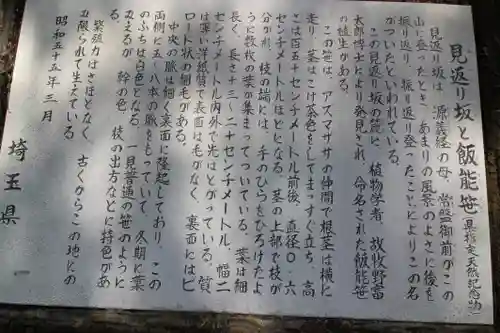 見返り坂と飯能笹(県指定天然記念物)
見返り坂は、源義経の母、常盤御前がこの
山に登ったとき、あまりの風景のよさに後を
振り返り、振り返り登ったことによりこの名
がついたといわれている。
この見返り坂の笹に、植物学者、故牧野富
太郎博士により発見され、命名された飯能笹
の植生がある。
この笹は、アズマザサの仲間で根茎は横に
走り、茎はこげ茶色をしてまっすぐ立ち、高
さは百五十センチメートル前後、直径〇・六
センチメートルほどになる。茎の上部で枝が
分かれ、枝の端には、手のひらをひろげたよ
うに数枚の葉が集まってついている。葉は細
長く、長さ十三〜二十センチメートル、幅二
センチメートル内外で先はとがっている。質
は薄い洋紙質で表面は毛がなく、裏面にはビ
ロード状の細毛がある。
中央の脈は細く裏面に隆起しており、この
両側に五〜八本の脈をもっていて、冬期に葉
のふちは白色となる。一見普通の笹のように
みえるが、幹の色、枝の出方などに特色があ
る。
繁殖力はさほどなく、古くからこの地にの
み限られて生えている。
昭和五十五年三月
埼玉県